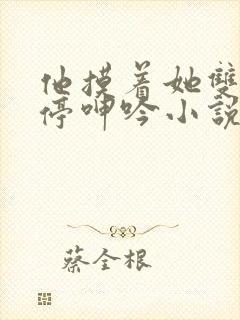 他摸着她雙
停呻吟小說
蔡全根